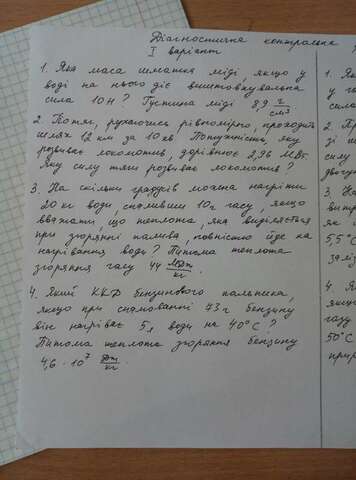 Діагностична контрольна
I варіант
1. Яка маса шматка міді, якщо у
воді на нього діє виштовхувальна
сила 10 Н? Густина міді 8,9 г/см³
2. Потяг, рухаючись рівномірно, проходить
шлях 12 км за 10 хв. Потужність, яку
розвиває локомотив, дорівнює 2,96 МВт.
Яку силу тяги розвиває локомотив?
3. На скільки градусів можна нагріти
20 кг води, спаливши 10 г газу, якщо
вважати, що теплота, яка виділяється
при згорянні палива, повністю йде на
нагрівання води? Питома теплота
згоряння газу 44 МДж/кг.
4. Який ККД бензинового пальника,
якщо при спалюванні 73 г бензину
він нагріває 5 л води на 40°С?
Питома теплота згоряння бензину
4,6 · 10⁷ Дж/кг
1.
у г
сила
2.
зі
3.
як
5,5°С
4.
якщо
газу
50°С